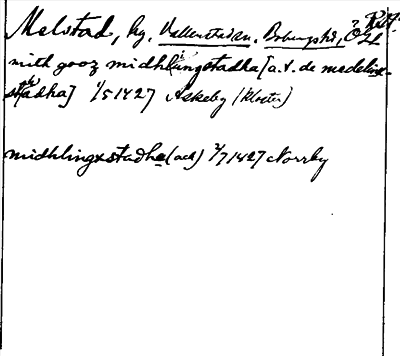 Melstad, hg. Vallerstadsn. Bobergshd, ÖGL
mith gooz midhlingstadha [a.t. de medelinx-
stadha] 1/5 1427 Askeby (Kloster)
midhlingxstadha (ack) 2/7 1427 Norrby